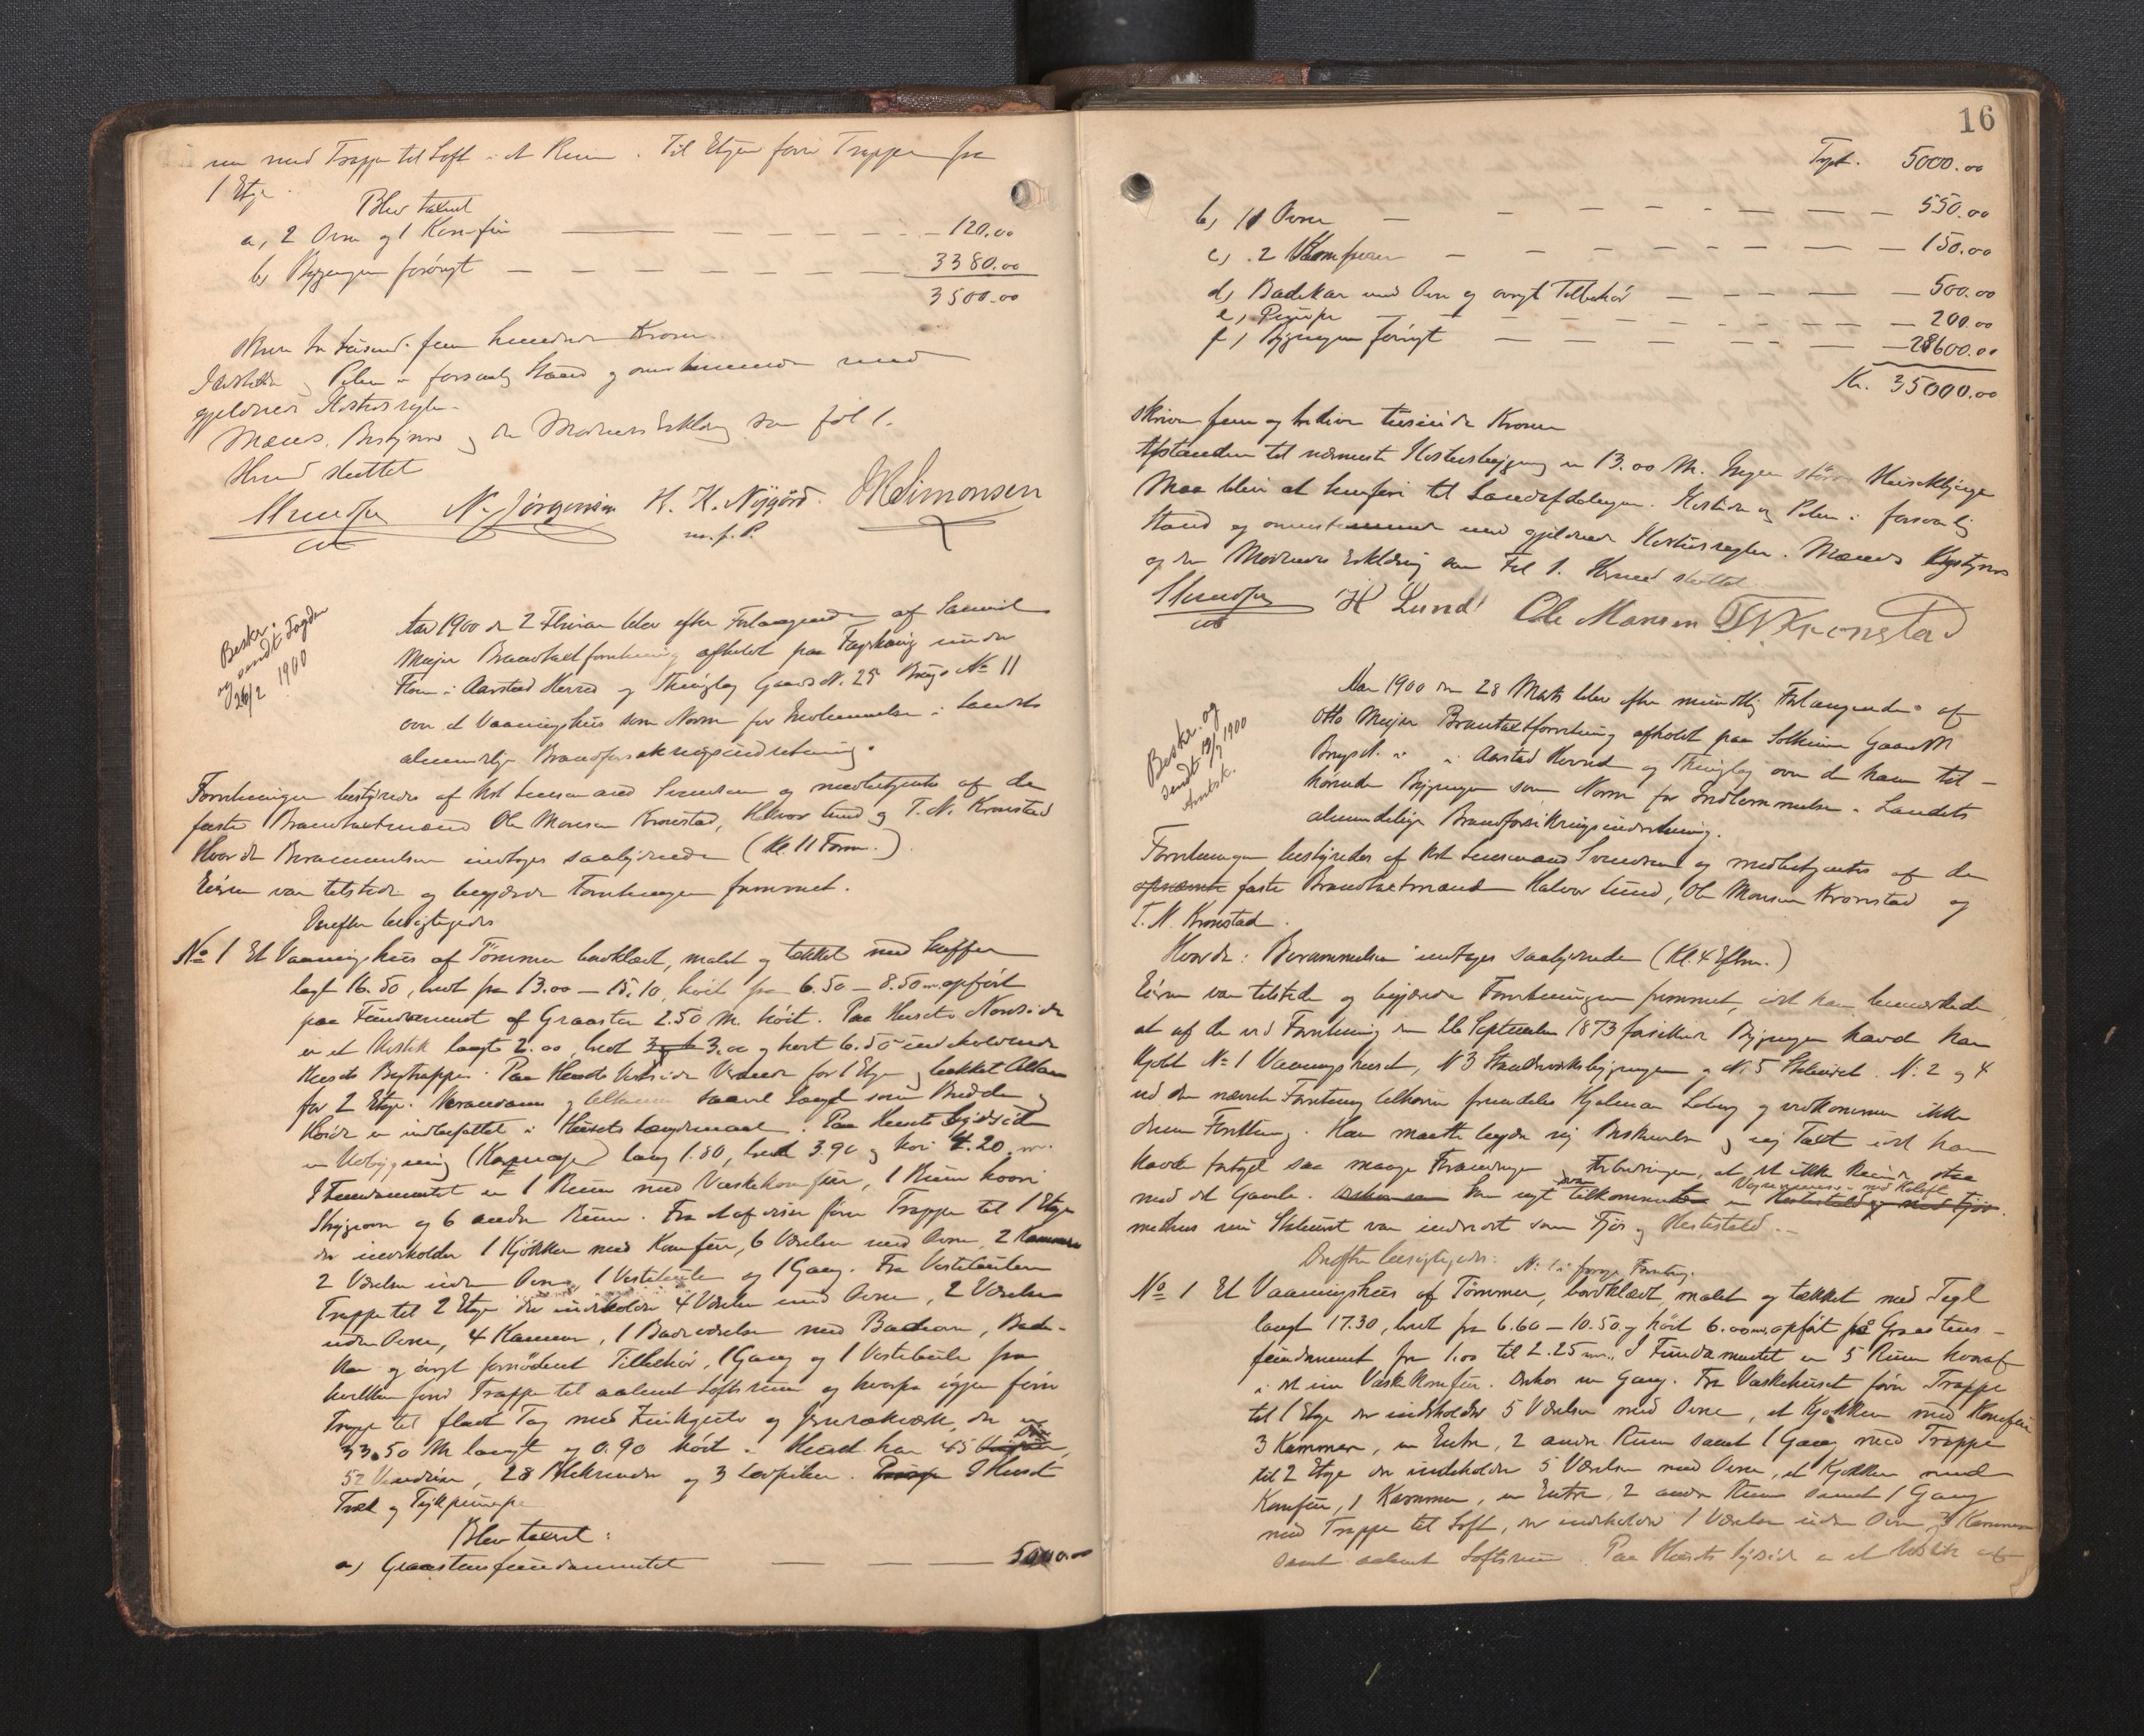 rum med Trappe til Loft i et Rum. Til Etagen fører Trappe fra
1 Etge.
Blev taxeret
a, 2 Ovne og 1 Komfur — — — 120.00
b, Bygningen forøvrigt — — — 3380.00
3500.00
skriver tre tusind fem hundrede Kroner.
Ildsteder og Piber i forsvarlig Stand og overensstemmende med
gjeldende Ildstedsregler.
Mænds, Bestyrers og de Mødendes Erklæring som fol 1.
Hermed sluttet
Svendsen N. Jørgensen K. K. Nygård. Simonsen
cst m. f. P.
Beskr.
og sendt Fogden
26/2 1900
Aar 1900 den 2 Februar blev efter Forlangende af Samuel
Meyer Brandtaxtforretning afholdt paa Fageraasvig under
i Aarstad Herred og Thinglag Gaards N. 25 Brugs № 11
over et Vaaningshus som Norm for Indlemmelse i Landets
almindelige Brandforsikringsindretning.
Forretningen bestyredes af Kst Lensmand Svendsen og medbetjentes af de
faste Brandtaxtmænd Ole Monsen Kronstad, Halvor Lund og T. N. Kronstad
Hvor da Berammelsen indtoges saalydende (Kl. 11 Form.)
Eieren var tilstede og begjærede Forretningen fremmet.
Derefter besigtigedes
№ 1 Et Vaaningshus af Tømmer bordklædt, malet og tækket med Skiffer
langt 16.50, bredt fra 13.00 — 15.10, høit fra 6.50 — 8.50 m. opført
paa Fundament af Graasten 2.50 M. høit. Paa Husets Nordside
er et Udstik langt 2.00, bredt 3.00 og høit 6.50 indeholdende
Husets Bagtrappe. Paa Husets Vestside Veranda for 1 Etge og lukket Altan
for 2 Etge. Verandaens og Altanens saavel Længde som Bredde og
Høide er indbefattet i Husets Længdemaal. Paa Husets Sydside
en Udbygning (Karnap) lang 1.80, bred 3.90 og høi 4.20 m.
I Fundamentet er 1 Rum med Vaskekomfur, 1 Rum hvori
og 6 andre Rum. Fra et af disse fører Trappe til 1 Etge
der indeholder 1 Kjøkken med Komfur, 6 Værelser med Ovne, 2 Kammere
2 Værelser uden Ovne, 1 Vestibule og 1 Gang. Fra Vestibulen
Trappe til 2 Etge der indeholder 4 Værelser med Ovne, 2 Værelser
uden Ovne, 4 Kammer, 1 Badeværelse med Badeovn, Bade-
kar og øvrigt fornødent Tilbehør, 1 Gang og 1 Vestibule fra
hvilken fører Trappe til aabent Loftsrum og hvorfra igjen fører
Trappe til fladt Tag med Zinkgulv og Jernrækværk, der er
33.50 M langt og 0.90 høit. Huset har 45 Døre,
52 Vinduer, 28 Blikrender og 3 Lovpiber. I Huset
Træk og Trykpumpe
Blev taxeret:
a) Graastensfundamentet — — — 5000.00
16
Trpt. 5000.00
b, 11 Ovne — — — 550.00
c, 2 Komfurer — — — 150.00
d, Badekar med Ovn og øvrigt Tilbehør — — — 500.00
e, Pumpe — — — 200.00
f, Bygningen forøvrigt — — — 28600.00
Kr. 35000.00
skriver fem og tredive tusinde Kroner
Afstanden til nærmeste Ildstedsbygning er 13.00 M. Ingen større
Maa blive at henføre til Landafdelingen. Ildsteder og Piber i forsvarlig
Stand og overensstemmende med gjeldende Ildstedsregler. Mænds, Bestyrers
og de Mødendes Erklæring som Fol 1. Hermed sluttet
Svendsen H Lund Ole Monsen T. N. Kronstad
cst
Beskr. og
sendt 13/7 1900
Amtsk.
Aar 1900 den 28 Marts blev efter mundtlig Forlangende af
Otto Meyer Brandtaxtforretning afholdt paa Solheim Gaards N
Brugs N. " i Aarstad Herred og Thinglag over de ham til-
hørende Bygninger som Norm for Indlemmelse i Landets
almindelige Brandforsikringsindretning.
Forretningen bestyredes af Kst Lensmand Svendsen og medbetjentes af de
opnævnte faste Brandtaxtmænd Halvor Lund, Ole Monsen Kronstad og
T. N. Kronstad.
Hvor da Berammelsen indtoges saalydende (Kl. 4 Efterm.)
Eieren var tilstede og begjærede Forretningen fremmet, idet han bemærkede
at af de ved Forretning den 26 September 1873 forsikrede Bygninger havde han
kjøbt № 1 Vaaningshuset, N 3 Standværksbygningen og N. 5 Stenhuset. N. 2 og 4
ved den nævnte Forretning tilhører fremdeles Hjalmar Loberg og vedkommer ikke
denne Forretning. Han maatte begjære ny Beskrivelse og ny Taxt idet han
havde foretaget saa mange Forandringer og Forbedringer, at det ikke kunde staa
med det Gamle. Som nyt var tilkommet en Vognremisse med Høloft
medens nu Stenhuset var indredet som Fjøs og Hestestald. —
Derefter besigtigedes: N: 1 i forrige Forretning.
№ 1 Et Vaaningshus af Tømmer, bordklædt, malet og tækket med Tegl
langt 17.30, bredt fra 6.60 — 10.50 og høit 6.00 m. opført på Graastens-
fundament fra 1.00 til 2.25 m. I Fundamentet er 5 Rum hvoraf
i det ene Vaskekomfur. Desuden en Gang. Fra Vaskehuset fører Trappe
til 1 Etge der indeholder 5 Værelser med Ovne, et Kjøkken med Komfur
3 Kammer, en Entre, 2 andre Rum samt 1 Gang med Trappe
til 2 Etge der indeholder 5 Værelser med Ovne, et Kjøkken med
Komfur, 1 Kammer, en Entre, 2 andre Rum samt 1 Gang
med Trappe til Loft, der indeholder 1 Værelse uden Ovn, Kammere
samt aabent Loftsrum. Paa Husets Sydside er et Udstik af